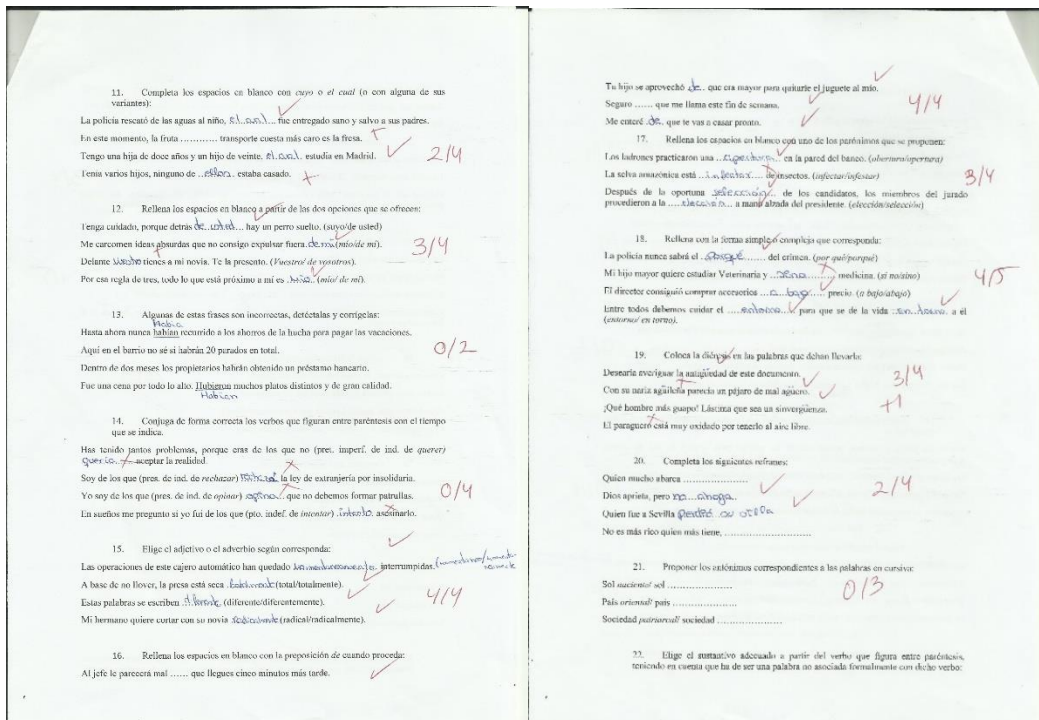 11. Completa los espacios en blanco con cuyo o el cual (o con alguna de sus
variantes):
La policía rescató de las aguas al niño, el cual fue entregado sano y salvo a sus padres.
En este momento, la fruta ............ transporte cuesta más caro es la fresa.
Tengo una hija de doce años y un hijo de veinte, el cual estudia en Madrid.
2/4
Tenía varios hijos, ninguno de ellos estaba casado.
12. Rellena los espacios en blanco a partir de las dos opciones que se ofrecen:
Tenga cuidado, porque detrás de usted hay un perro suelto. (suyo/de usted)
Me carcomen ideas absurdas que no consigo expulsar fuera de mí (mío/de mí).
3/4
Delante vuestro tienes a mi novia. Te la presento. (Vuestro/ de vosotros).
Por esa regla de tres, todo lo que está próximo a mí es mío (mío/ de mí).
13. Algunas de estas frases son incorrectas, detéctalas y corrígelas:
Había
Hasta ahora nunca habían recurrido a los ahorros de la hucha para pagar las vacaciones.
Aquí en el barrio no sé si habrán 20 parados en total.
0/2
Dentro de dos meses los propietarios habrán obtenido un préstamo bancario.
Fue una cena por todo lo alto. Hubieron muchos platos distintos y de gran calidad.
Habían
14. Conjuga de forma correcta los verbos que figuran entre paréntesis con el tiempo
que se indica.
Has tenido tantos problemas, porque eras de los que no (pret. imperf. de ind. de querer)
quería aceptar la realidad.
Soy de los que (pres. de ind. de rechazar) la ley de extranjería por insolidaria.
Yo soy de los que (pres. de ind. de opinar) opino que no debemos formar patrullas.
0/4
En sueños me pregunto si yo fui de los que (pto. indef. de intentar) intento asesinarlo.
15. Elige el adjetivo o el adverbio según corresponda:
Las operaciones de este cajero automático han quedado interrumpidas.
A base de no llover, la presa está seca totalmente (total/totalmente).
Estas palabras se escriben diferente (diferente/diferentemente).
4/4
Mi hermano quiere cortar con su novia radicalmente (radical/radicalmente).
16. Rellena los espacios en blanco con la preposición de cuando proceda:
Al jefe le parecerá mal ...... que llegues cinco minutos más tarde.
Tu hijo se aprovechó de que era mayor para quitarle el juguete al mío.
Seguro ...... que me llama este fin de semana.
4/4
Me enteré de que te vas a casar pronto.
17. Rellena los espacios en blanco con uno de los parónimos que se proponen:
Los ladrones practicaron una apertura en la pared del banco. (obertura/apertura)
La selva amazónica está infectar de insectos. (infectar/infestar)
3/4
Después de la oportuna selección de los candidatos, los miembros del jurado
procedieron a la elección a mano alzada del presidente. (elección/selección)
18. Rellena con la forma simple o compleja que corresponda:
La policía nunca sabrá el porqué del crimen. (por qué/porqué)
Mi hijo mayor quiere estudiar Veterinaria y sino medicina. (si no/sino)
4/5
El director consiguió comprar accesorios a bajo precio. (a bajo/abajo)
Entre todos debemos cuidar el entorno para que se de la vida en torno a él
(entorno/ en torno).
19. Coloca la diéresis en las palabras que deban llevarla:
Desearía averiguar la antigüedad de este documento.
3/4
Con su nariz agüileña parecía un pájaro de mal agüero.
+1
¡Qué hombre más guapo! Lástima que sea un sinvergüenza.
El paragüero está muy oxidado por tenerlo al aire libre.
20. Completa los siguientes refranes:
Quien mucho abarca ...................
2/4
Dios aprieta, pero no ahoga.
Quien fue a Sevilla perdió su silla
No es más rico quien más tiene, .....................
21. Proponer los antónimos correspondientes a las palabras en cursiva:
Sol naciente/ sol ...................
0/3
País oriental/ país .....................
Sociedad patriarcal/ sociedad .....................
22. Elige el sustantivo adecuado a partir del verbo que figura entre paréntesis,
teniendo en cuenta que ha de ser una palabra no asociada formalmente con dicho verbo: